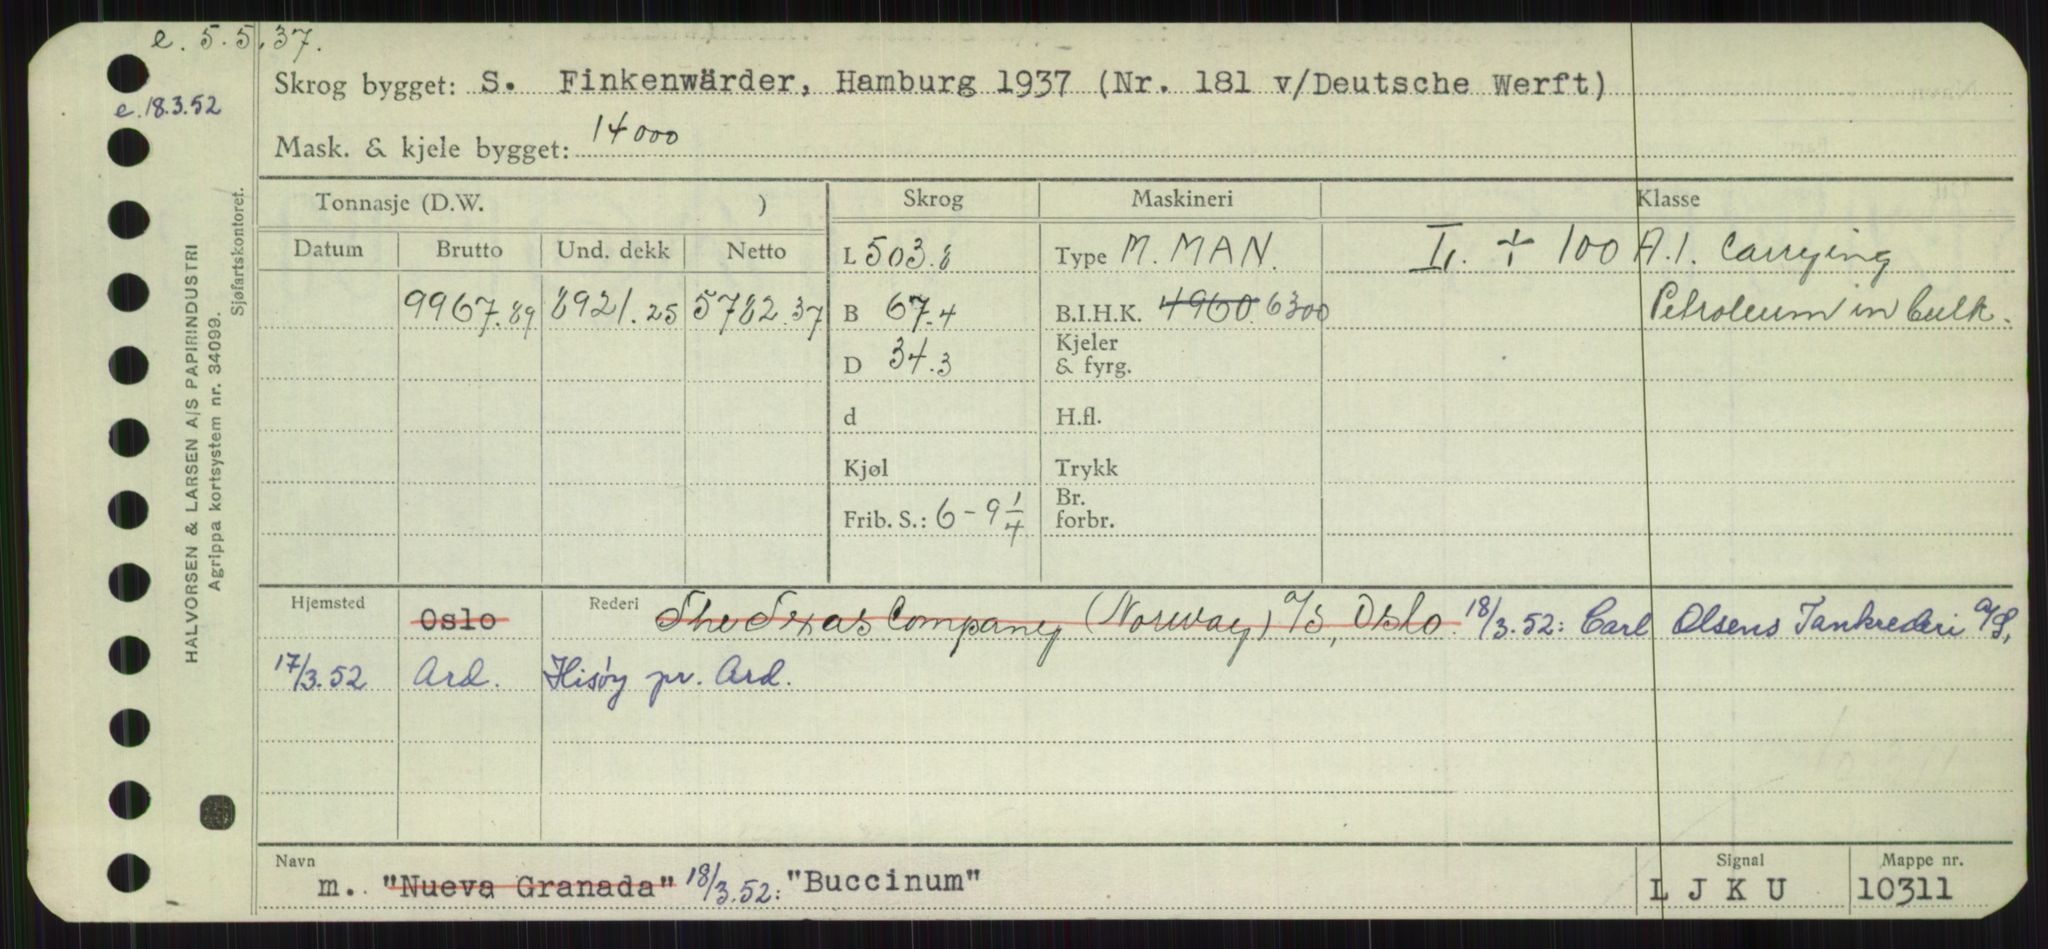 e. 5.5.37.
Skrog bygget: S. Finkenwärder, Hamburg 1937 (Nr. 181 v/Deutsche Werft)
e. 18.3.52
Mask. & kjele bygget: 14000
Tonnasje (D.W. ) Skrog Maskineri Klasse
Datum Brutto Und. dekk Netto L 503.8 Type M. MAN. 100 A.1. Carrying
9967.89 8921.25 5782.37 B 67.4 B.I.H.K. 4960. 6300 Petroleum in bulk.
D 34.3 Kjeler
& fyrg.
d H.fl.
Kjøl Trykk
Frib. S.: 6-9 1/4 Br.
forbr.
Hjemsted Oslo Rederi The Texas Company (Norway) A/S, Oslo. 18/3.52: Carl Olsens Tankrederi A/S,
17/3.52 Ard. Hisøy pr. Ard.
Navn Signal Mappe nr.
m. "Nueva Granada" 18/3.52: "Buccinum" L J K U 10311
HALVORSEN & LARSEN A/S PAPIRINDUSTRI
Agrippa kortsystem nr. 34099.
Sjøfartskontoret.